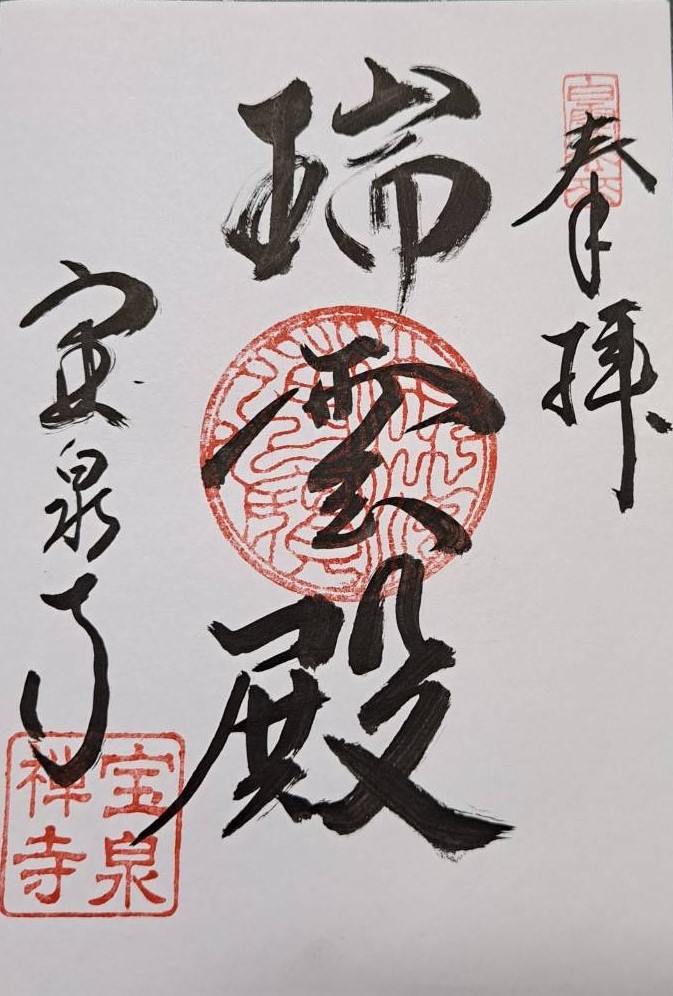 奉拝
瑞雲殿
宝泉寺
宝泉
禅寺